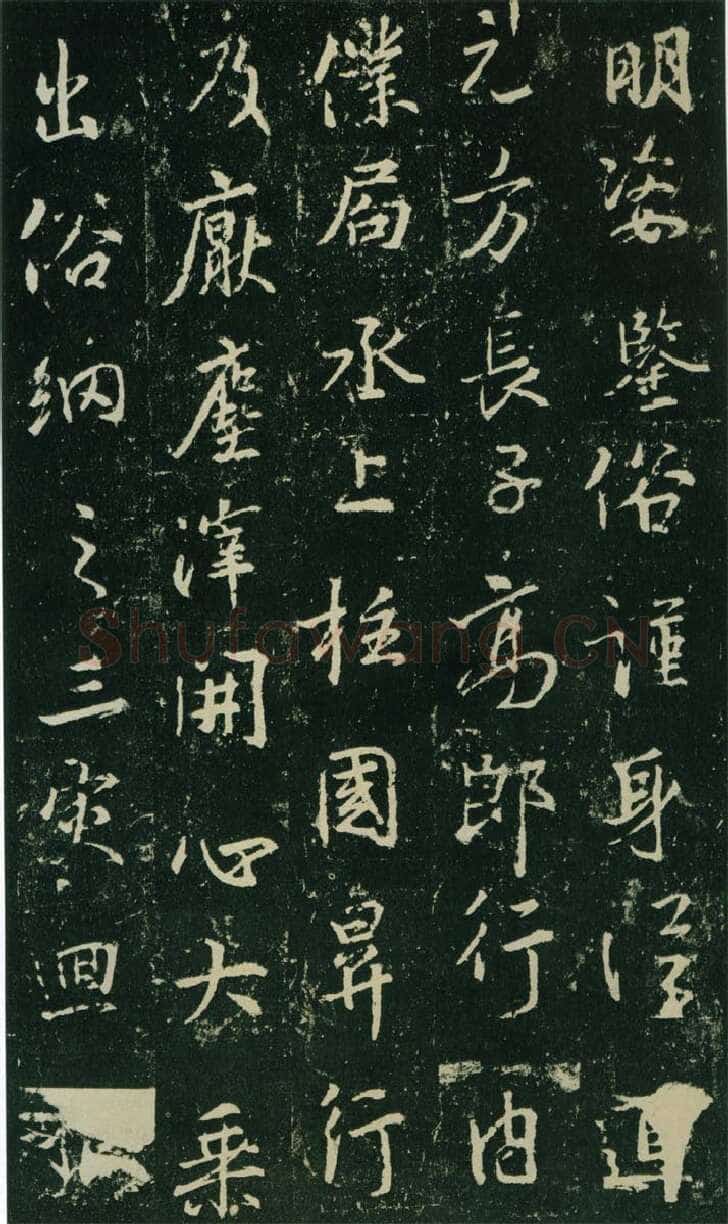 明姿鑒俗謹身
元方長子高郎行內
僕局丞上柱國昇行
及厥塵滓開心大乘
出俗納之三迴
Shufawang.CN